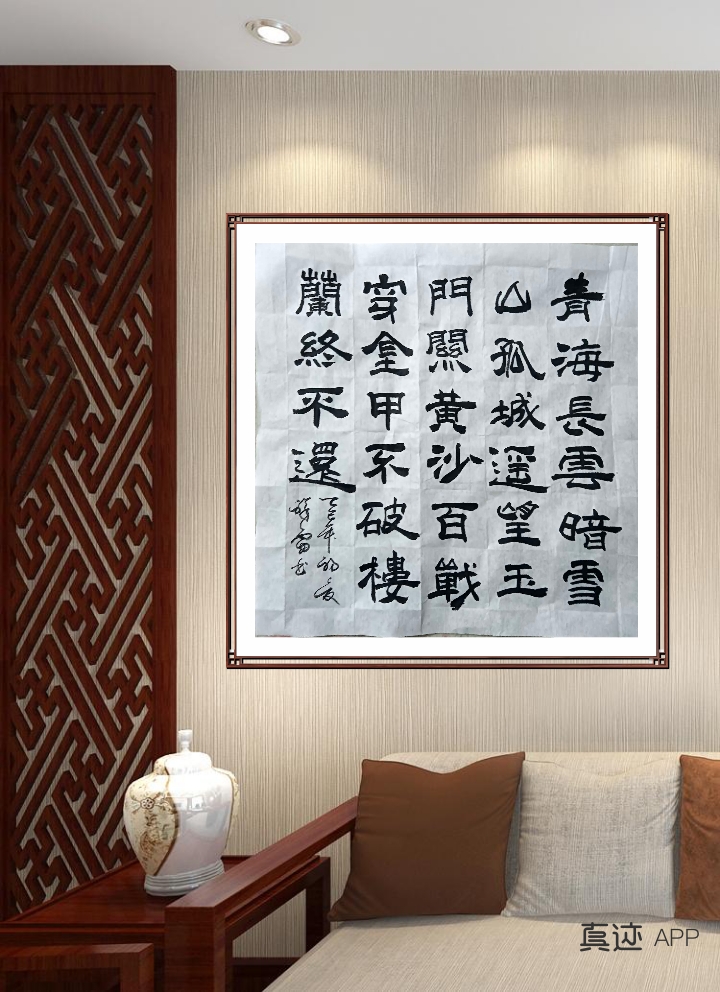 青海長雲暗雪
山孤城遥望玉
門關黄沙百戰
穿金甲不破樓
蘭終不還
乙巳年初夏
真迹 APP